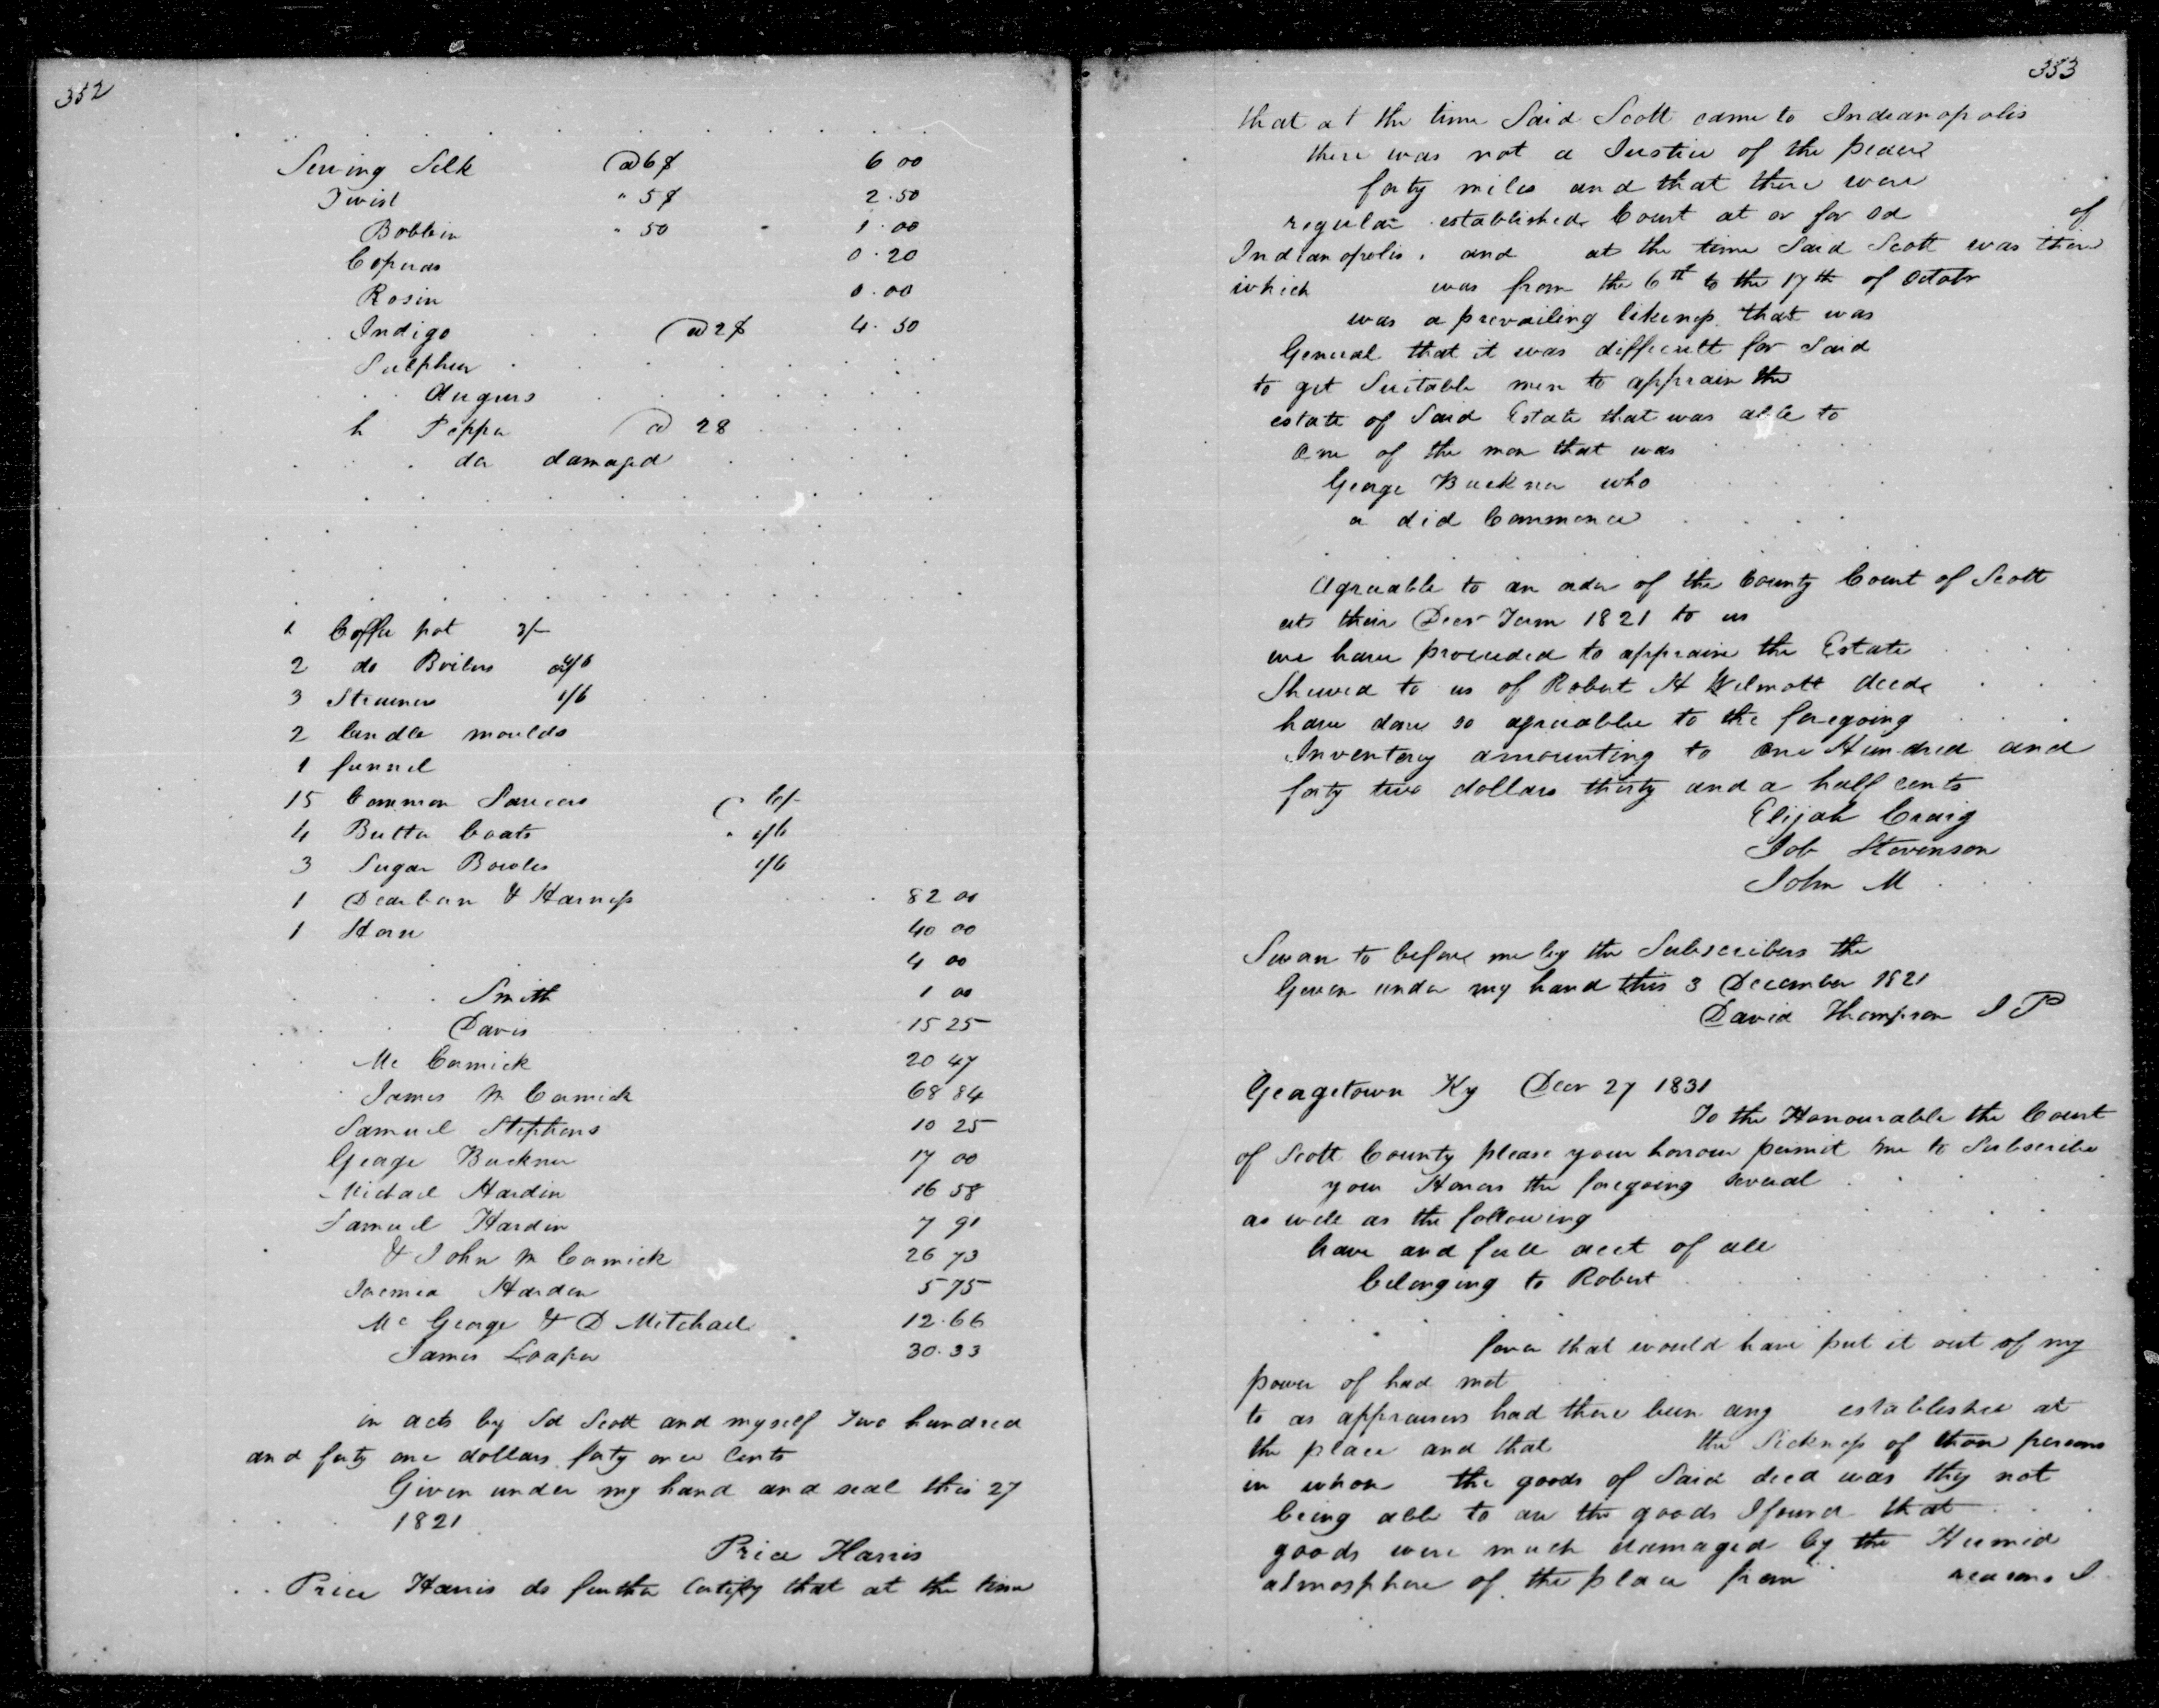 352
Sewing Silk @ 6$ 6 00
Twist " 5$ 2.50
Bobbin " 50 1.00
Coperas 0.20
Rosin 0.00
Indigo @ 2$ 4.50
Sulphur
Augurs
h Pepper @ 28
do damaged
1 Coffee pot 3/-
2 do Boilers
3 Strainers 1/6
2 Candle moulds
1 funnel
15 Common Saucers 6/-
4 Butter boats " 1/6
3 Sugar Bowles 1/6
1 Dearban & Harness 82 00
1 Horse 40 00
4 00
Smith 1 00
Davis 15 25
Mc Comick 20 47
James Mc Comick 68 84
Samuel Stephens 10 25
George Buckner 17 00
Michael Hardin 16 58
Samuel Hardin 7 91
& John Mc Comick 26 73
Harden 5 75
Mc George & D Mitchael 12.66
James Loaper 30.33
in acts by Sd Scott and myself Two hundred
and forty one dollars forty one Cents
Given under my hand and seal this 27
1821
Price Harris
Price Harris do further Certify that at the time
353
that at the time Said Scott came to Indianopolis
there was not a Justice of the peace
forty miles and that there were
regular established Court at or for Sd of
Indianopolis. and at the time Said Scott was there
which was from the 6th to the 17th of Octobr
was a prevailing likeness that was
General that it was difficult for Said
to get Suitable men to appraise the
estate of Said Estate that was able to
One of the men that was
George Buckner who
a did Commence
Agreeable to an order of the County Court of Scott
at their Decr Term 1821 to us
we have proceeded to appraise the Estate
Shewed to us of Robert H Wilmott decd
have done so agreeable to the foregoing
Inventory amounting to One Hundred and
forty two dollars thirty and a half cents
Elijah Craig
Job Stevenson
John M
Sworn to before me by the Subscribers the
Given under my hand this 3 December 1821
David Thompson J P
Georgetown Ky Decr 27 1831
To the Honourable the Court
of Scott County please your honour permit me to Subscribe
your Honors the foregoing several
as well as the following
have and full acct of all
belonging to Robert
fever that would have put it out of my
power of had met
to as appraisers had there been any established at
the place and that the Sickness of those persons
in whose the goods of Said decd was they not
being able to air the goods I found that
goods were much damaged by the Humid
atmosphere of the place from reasons I